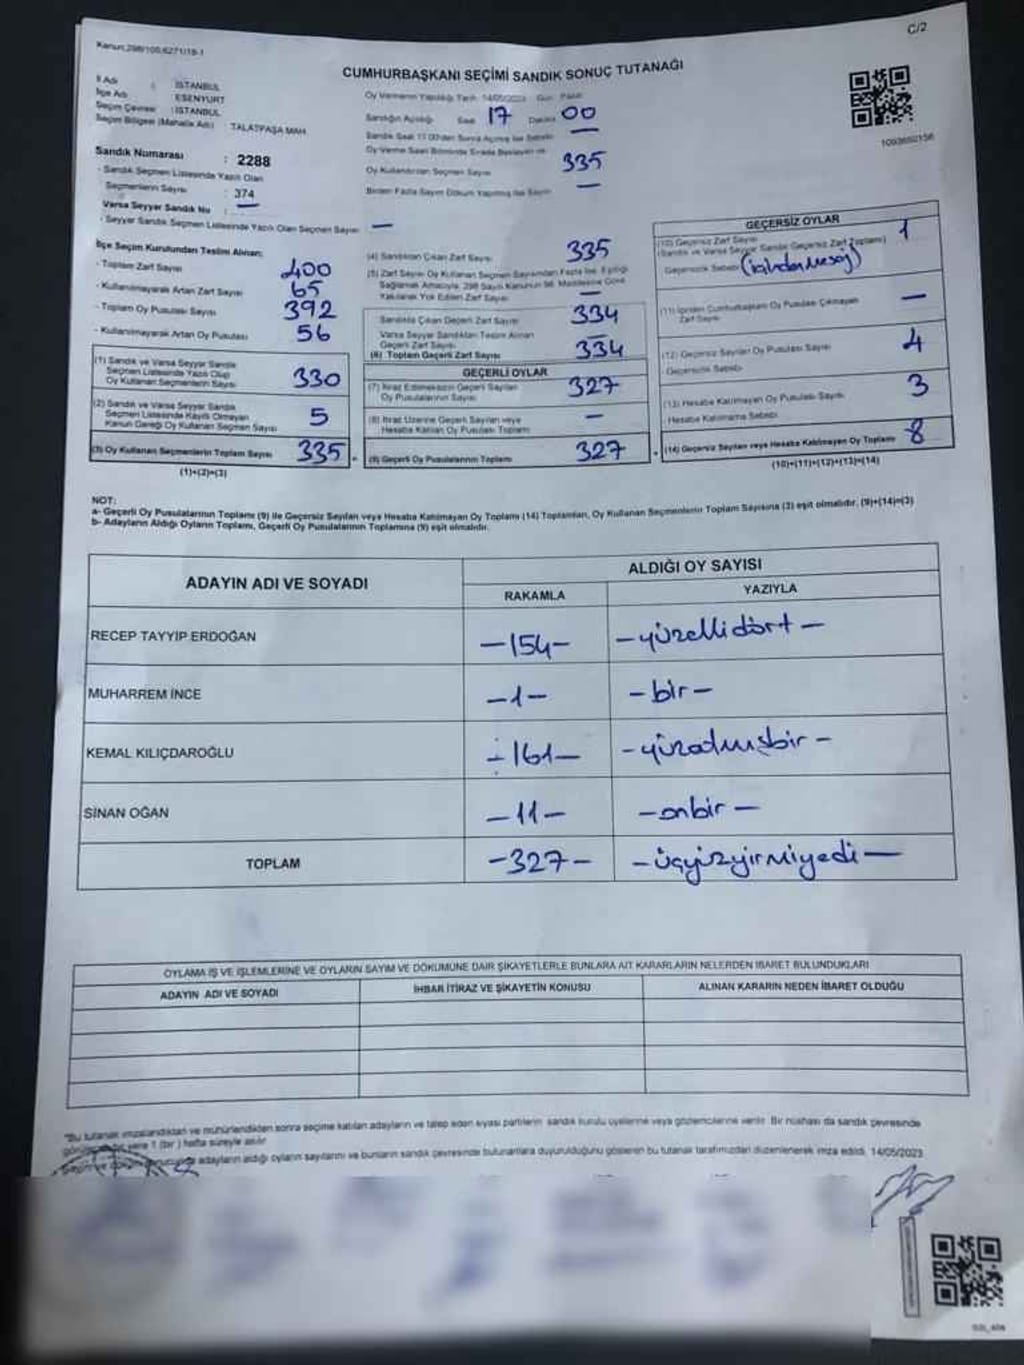 C/2
Kanun:298/105,6271/18-1
CUMHURBAŞKANI SEÇİMİ SANDIK SONUÇ TUTANAĞI
İl Adı : İSTANBUL
İlçe Adı : ESENYURT
Seçim Çevresi : İSTANBUL
Seçim Bölgesi (Mahalle Adı) : TALATPAŞA MAH.
Sandık Numarası : 2288
- Sandık Seçmen Listesinde Yazılı Olan
Seçmenlerin Sayısı : 374
Varsa Seyyar Sandık No : —
- Seyyar Sandık Seçmen Listesinde Yazılı Olan Seçmen Sayısı : —
Oy Vermenin Yapıldığı Tarih 14/05/2023 Gün: Pazar
Sandığın Açıldığı Saat 17 Dakika 00
Sandık Saat 17.00'den Sonra Açılmış İse Sebebi —
Oy Verme Saati Bitiminde Sırada Bekleyen ve
Oy Kullandırılan Seçmen Sayısı 335
Birden Fazla Sayım Döküm Yapılmış İse Sayısı —
1093692156
İlçe Seçim Kurulundan Teslim Alınan:
- Toplam Zarf Sayısı 400
- Kullanılmayarak Artan Zarf Sayısı 65
- Toplam Oy Pusulası 392
- Kullanılmayarak Artan Oy Pusulası 56
(1) Sandık ve Varsa Seyyar Sandık
Seçmen Listesinde Yazılı Olup
Oy Kullanan Seçmenlerin Sayısı 330
(2) Sandık ve Varsa Seyyar Sandık
Seçmen Listesinde Kayıtlı Olmayan
Kanun Gereği Oy Kullanan Seçmen Sayısı 5
(3) Oy Kullanan Seçmenlerin Toplam Sayısı 335
(1)+(2)=(3)
(4) Sandıktan Çıkan Zarf Sayısı 335
(5) Zarf Sayısı Oy Kullanan Seçmen Sayısından Fazla İse, Eşitliği
Sağlamak Amacıyla, 298 Sayılı Kanunun 98. Maddesine Göre
Yakılarak Yok Edilen Zarf Sayısı —
Sandıkta Çıkan Geçerli Zarf Sayısı 334
Varsa Seyyar Sandıktan Teslim Alınan
Geçerli Zarf Sayısı
(6) Toplam Geçerli Zarf Sayısı 334
GEÇERLİ OYLAR
(7) İtiraz Edilmeksizin Geçerli Sayılan
Oy Pusulalarının Sayısı 327
(8) İtiraz Üzerine Geçerli Sayılan veya
Hesaba Katılan Oy Pusulası Toplamı —
(9) Geçerli Oy Pusulalarının Toplamı 327
GEÇERSİZ OYLAR
(10) Geçersiz Zarf Sayısı 1
(Sandık ve Varsa Seyyar Sandık Geçersiz Zarf Toplamı)
Geçersizlik Sebebi
(11) İçinden Cumhurbaşkanı Oy Pusulası Çıkmayan
Zarf Sayısı —
(12) Geçersiz Sayılan Oy Pusulası Sayısı 4
Geçersizlik Sebebi
(13) Hesaba Katılmayan Oy Pusulası Sayısı 3
Hesaba Katılmama Sebebi
(14) Geçersiz Sayılan veya Hesaba Katılmayan Oy Toplamı 8
(10)+(11)+(12)+(13)=(14)
NOT:
a- Geçerli Oy Pusulalarının Toplamı (9) ile Geçersiz Sayılan veya Hesaba Katılmayan Oy Toplamı (14) Toplamları, Oy Kullanan Seçmenlerin Toplam Sayısına (3) eşit olmalıdır. (9)+(14)=(3)
b- Adayların Aldığı Oyların Toplamı, Geçerli Oy Pusulalarının Toplamına (9) eşit olmalıdır.
ADAYIN ADI VE SOYADI
ALDIĞI OY SAYISI
RAKAMLA YAZIYLA
RECEP TAYYİP ERDOĞAN –154– –yüzellidört–
MUHARREM İNCE –1– –bir–
KEMAL KILIÇDAROĞLU –161– –yüzaltmışbir–
SİNAN OĞAN –11– –onbir–
TOPLAM –327– –üçyüzyirmiyedi–
OYLAMA İŞ VE İŞLEMLERİNE VE OYLARIN SAYIM VE DÖKÜMÜNE DAİR ŞİKAYETLERLE BUNLARA AİT KARARLARIN NELERDEN İBARET BULUNDUKLARI
ADAYIN ADI VE SOYADI İHBAR İTİRAZ VE ŞİKAYETİN KONUSU ALINAN KARARIN NEDEN İBARET OLDUĞU
"Bu tutanak imzalandıktan ve mühürlendikten sonra seçime katılan adayların ve talep eden siyasi partilerin sandık kurulu üyelerine veya gözlemcilerine verilir. Bir nüshası da sandık çevresinde
görülebilir bir yere 1 (bir) hafta süreyle asılır
adayların aldığı oyların sayılarını ve bunların sandık çevresinde bulunanlara duyurulduğunu gösteren bu tutanak tarafımızdan düzenlenerek imza edildi. 14/05/2023